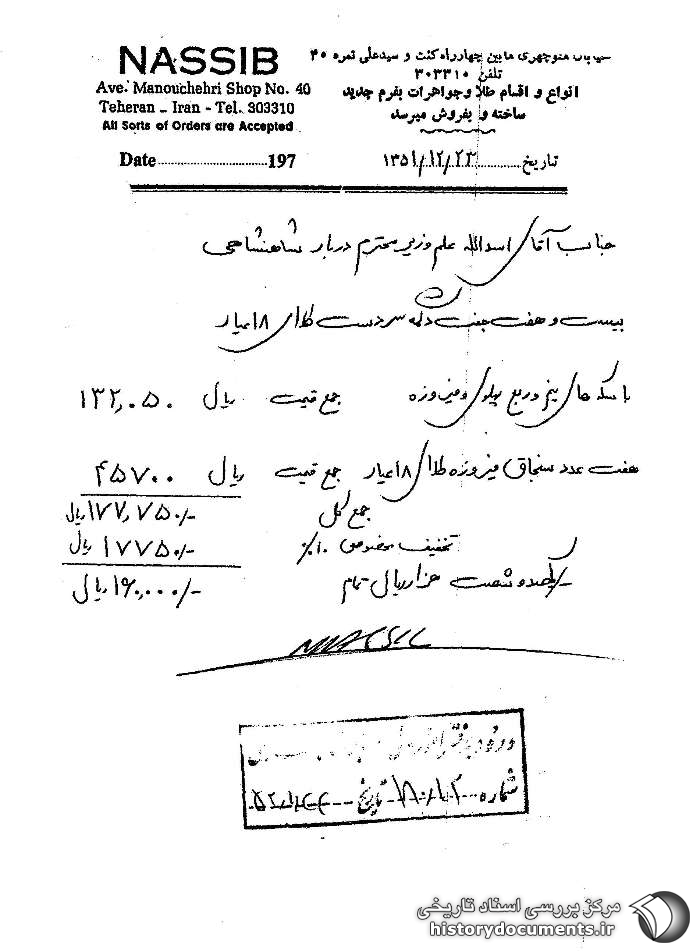 NASSIB
Ave. Manouchehri Shop No. 40
Teheran - Iran - Tel. 303310
All Sorts of Orders are Accepted
Date ........ 197
خیابان منوچهری مابین چهارراه کنت و سیدعلی نمره ۴۰
تلفن ۳۰۳۳۱۰
انواع و اقسام طلا و جواهرات بفرم جدید
ساخته و بفروش میرسد
تاریخ ۱۳۵۱/۱۲/۲۳
جناب آقای اسدالله علم وزیر محترم دربار شاهنشاهی
بیست و هفت جفت دکمه سردست طلای ۱۸ عیار
با سکه های نیم و ربع پهلوی و فیروزه جمع قیمت ریال ۱۳۲,۰۵۰
هفت عدد سنجاق فیروزه طلای ۱۸ عیار جمع قیمت ریال ۴۵۷۰۰
جمع کل ۱۷۷,۷۵۰/- ریال
تخفیف مخصوص ۱۰٪ ۱۷۷۵۰/- ریال
یکصد و شصت هزار ریال تمام ۱۶۰,۰۰۰/- ریال
شماره تاریخ
مرکز بررسی اسناد تاریخی
historydocuments.ir